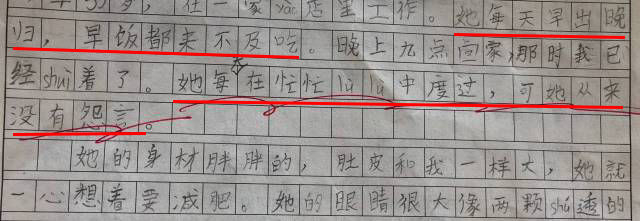 岁，在一家yao店里工作。她每天早出晚
归，早饭都来不及吃。晚上九点回家，那时我已
经shui着了。她每天在忙忙lu lu中度过，可她从来
没有怨言。
她的身材胖胖的，肚皮和我一样大，她就
一心想着要减肥。她的眼睛很大像两颗shu透的